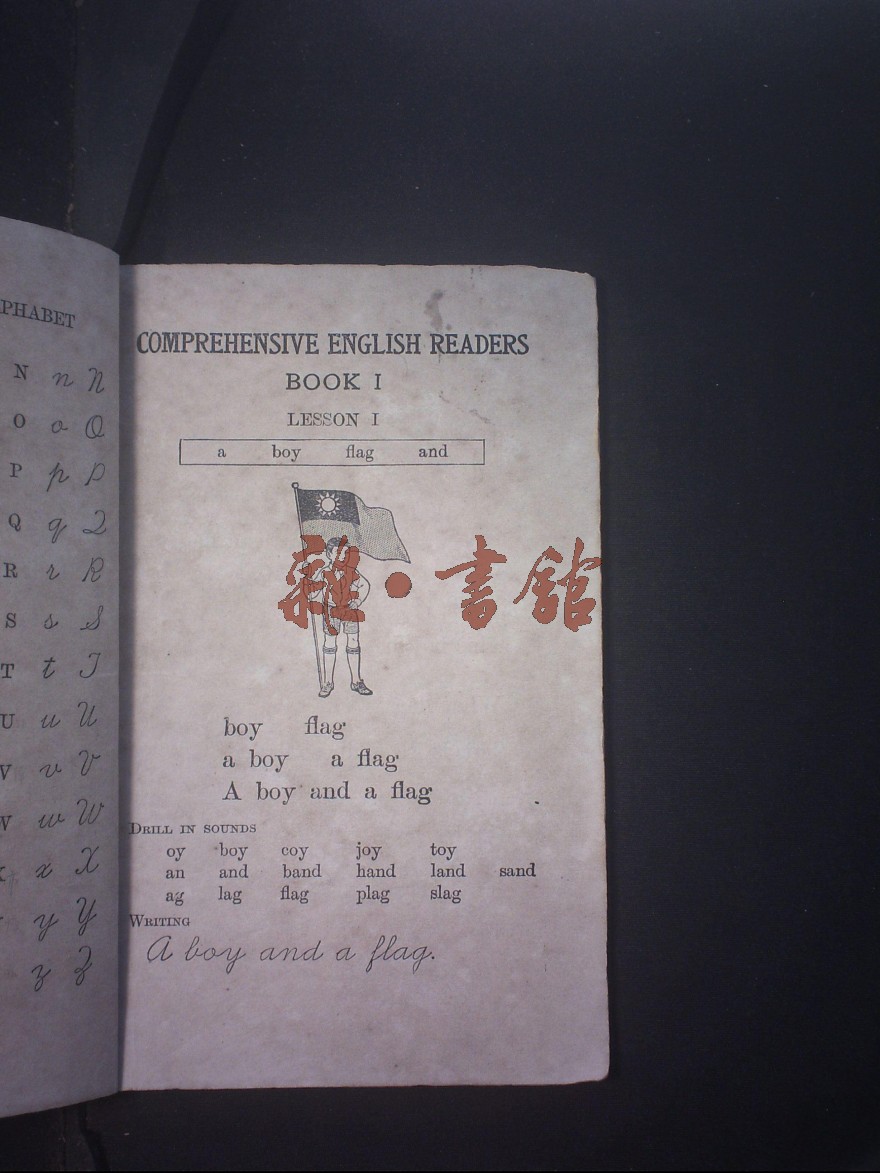 PHABET
N n N
O o O
P p P
Q q Q
R r R
S s S
T t T
U u U
V v V
W w W
x X
y Y
z Z
COMPREHENSIVE ENGLISH READERS
BOOK I
LESSON I
a boy flag and
雜·書館
boy flag
a boy a flag
A boy and a flag
DRILL IN SOUNDS
oy boy coy joy toy
an and band hand land sand
ag lag flag plag slag
WRITING
A boy and a flag.